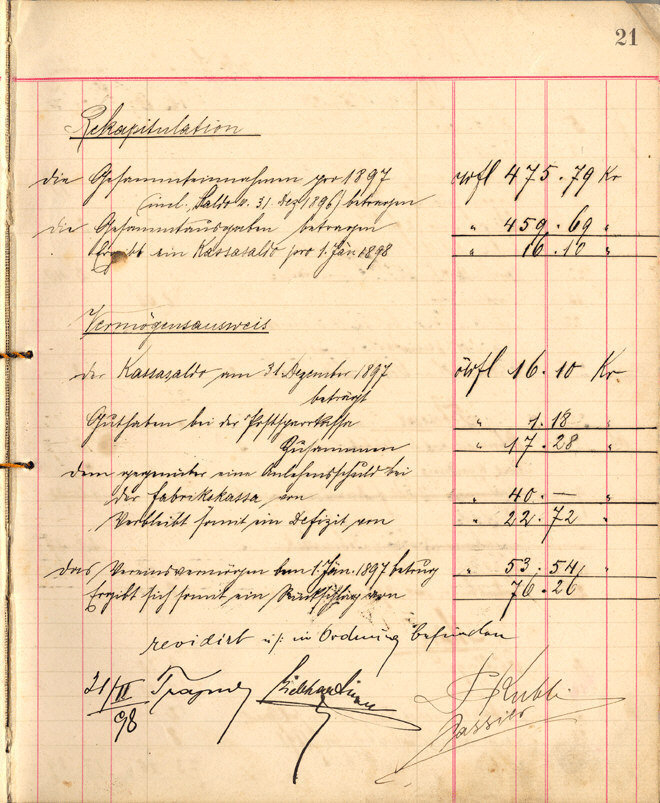 21
Rekapitulation
Die Gesammteinnahmen pro 1897 öWfl 475.79 Kr
(incl. Saldo v. 31. Dez 1896) betragen
die Gesammtausgaben betragen " 459.69 "
Ergibt ein Kassasaldo pro 1. Jän 1898 " 16.10 "
Vermögensausweis
Der Kassasaldo am 31. Dezember 1897 öWfl 16.10 Kr
beträgt
Guthaben bei der Postsparkassa " 1.18 "
Zusammen " 17.28 "
Dem gegenüber eine Anlehensschuld bei
der Fabrikskassa von " 40.— "
Verbleibt somit ein Defizit von " 22.72 "
Das Vereinsvermögen am 1. Jän. 1897 betrug " 53.54 "
Ergibt sich somit ein Rückschlag von 76.26
revidirt u. in Ordnung befunden
21/II
98
Kubli
Kassier